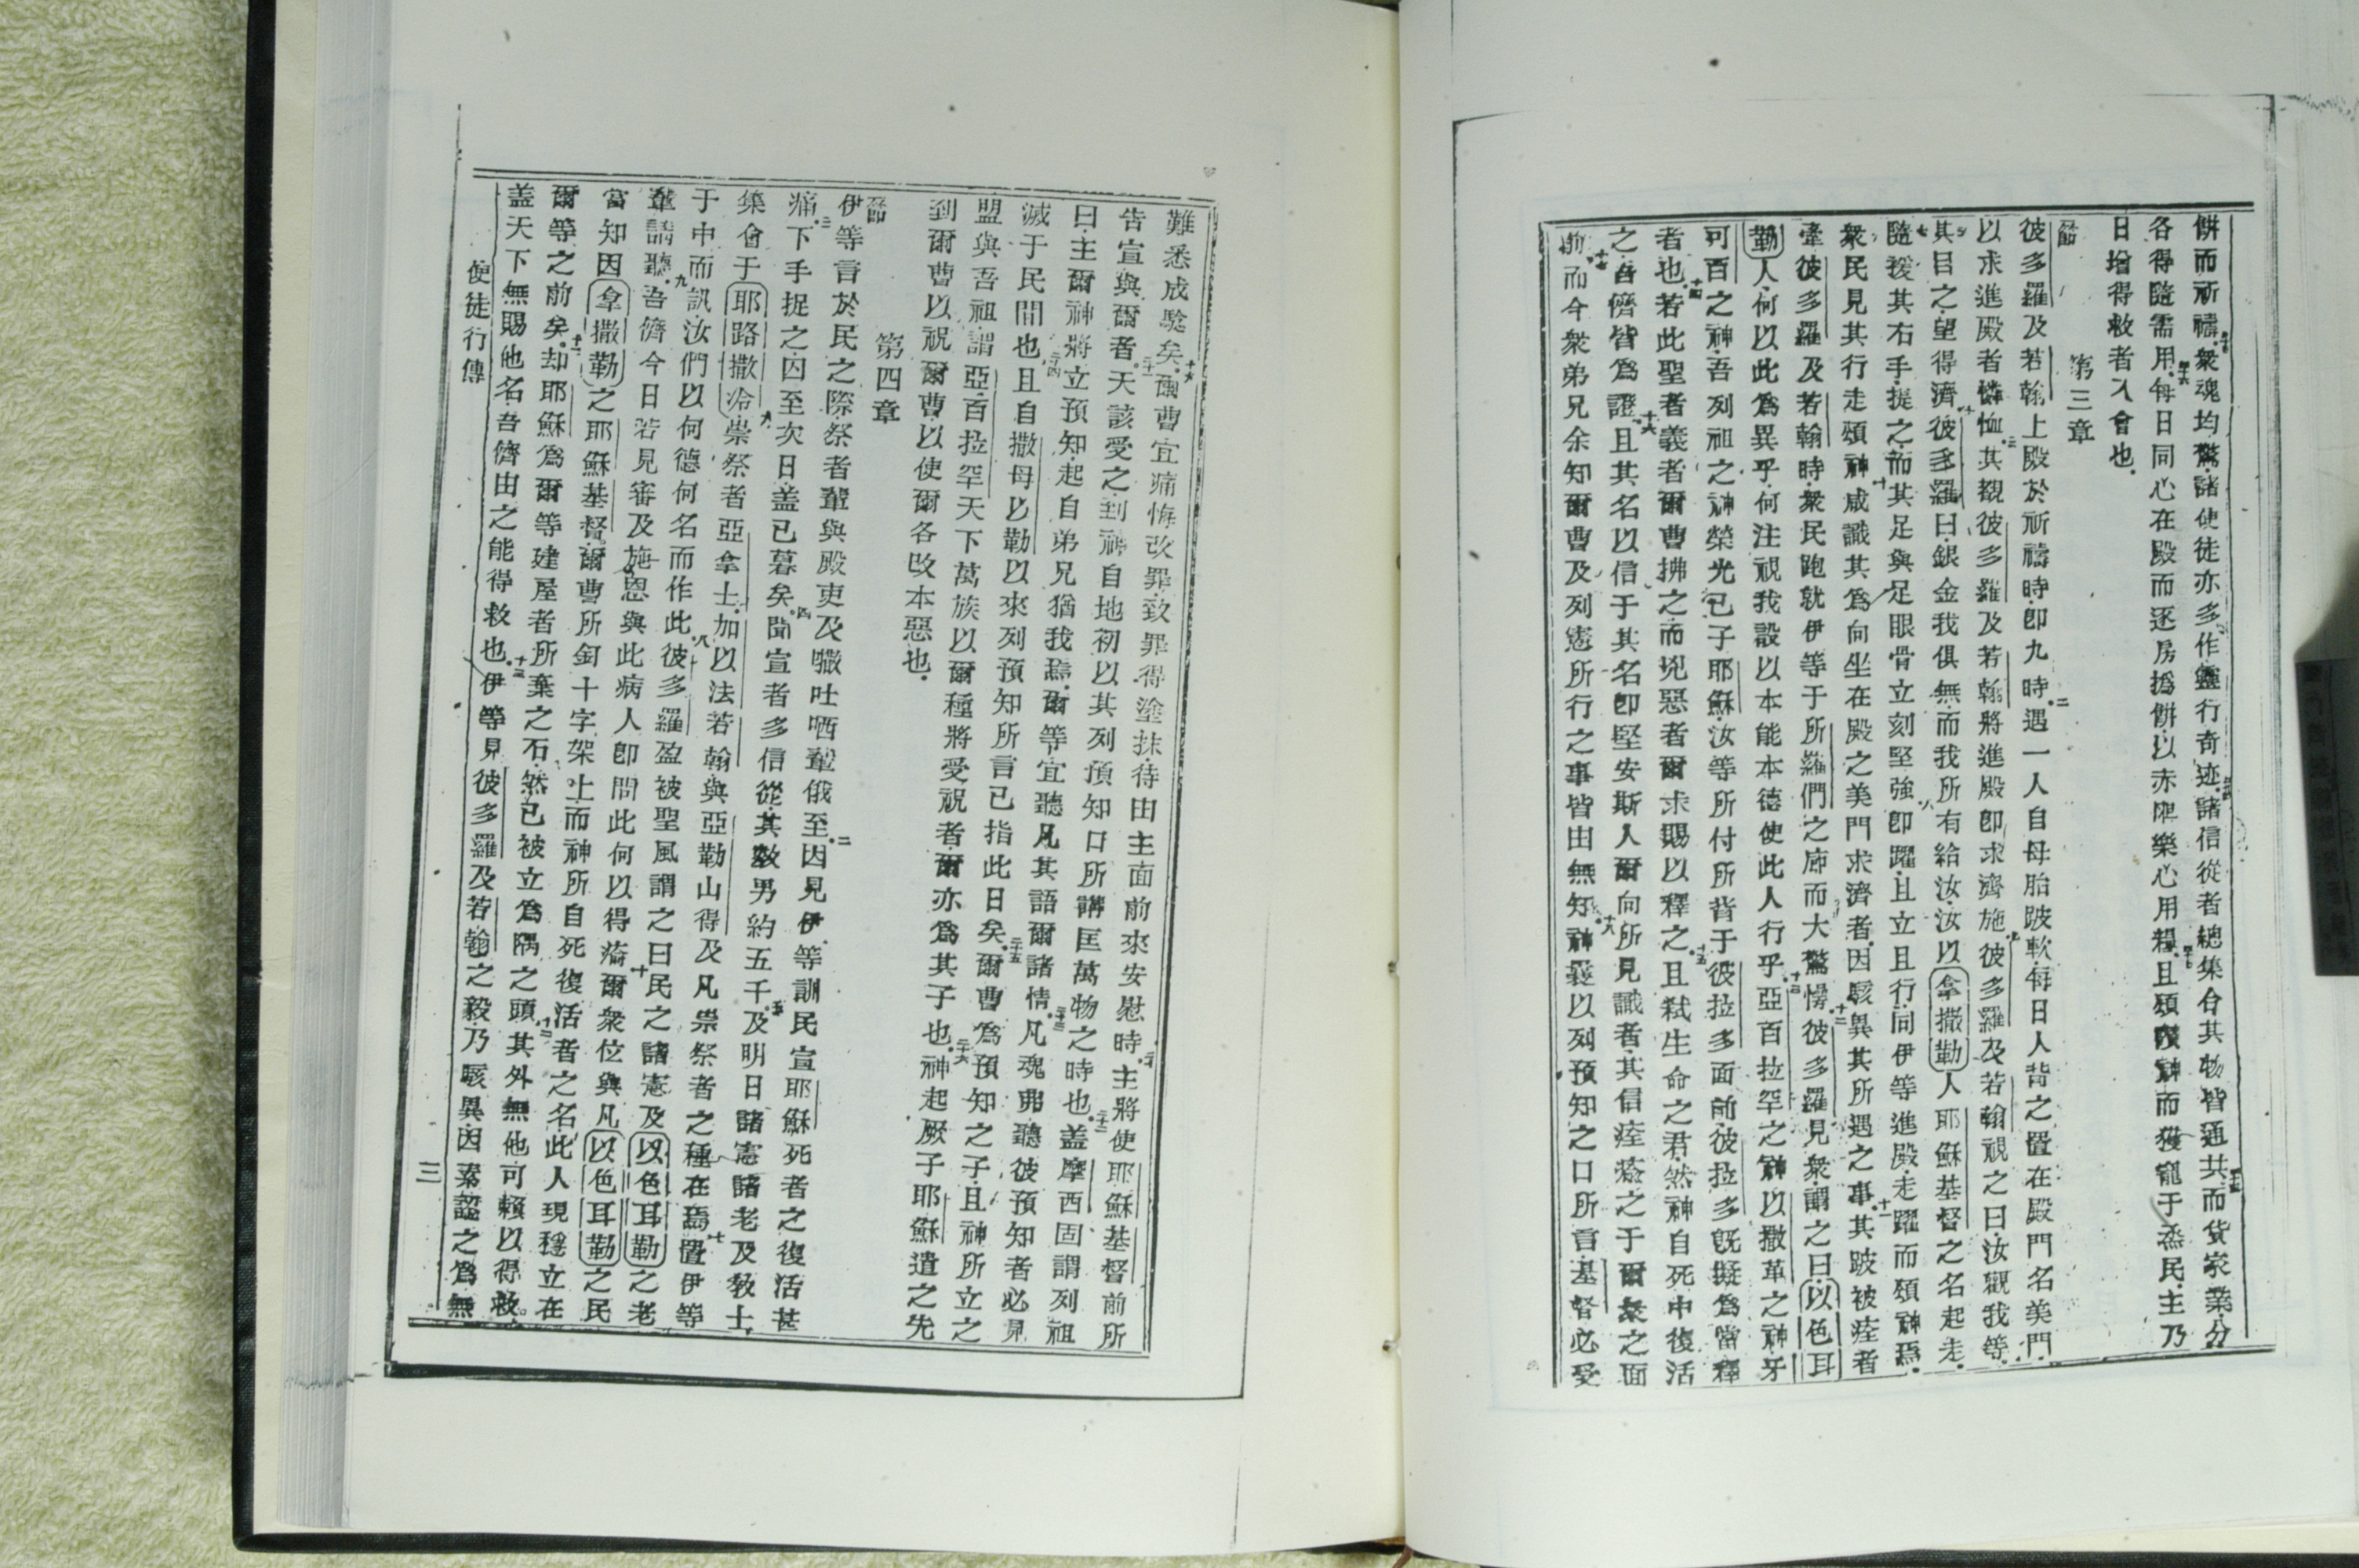 餅而祈禱衆魂均驚諸使徒亦多作靈行奇迹諸信從者總集合其物皆通共而貨家業分
各得隨需用每日同心在殿而逐房擘餅以赤心樂心用糧且頌神而獲寵于衆民主乃
日增得救者入會也
第三章
彼多羅及若翰上殿於祈禱時即九時遇一人自母胎跛軟每日人背之置在殿門名美門
以求進殿者憐恤其觀彼多羅及若翰將進殿即求濟施彼多羅及若翰視之曰汝觀我等
其目之望得濟彼多羅曰銀金我俱無而我所有給汝汝以拿撒勒人耶穌基督之名起走
隨援其右手提之而其足與足眼骨立刻堅強即躍且立且行同伊等進殿走躍而頌神焉
衆民見其行走頌神咸識其爲向坐在殿之美門求濟者因駭異其所遇之事其跛被痊者
牽彼多羅及若翰時衆民跑就伊等于所羅們之廊而大驚愕彼多羅見衆謂之曰以色耳
勒人何以此爲異乎何注視我設以本能本德使此人行乎亞百拉罕之神以撒革之神牙
可百之神吾列祖之神榮光已子耶穌汝等所付所背于彼拉多面前彼拉多旣擬爲當釋
者也若此聖者義者爾曹拂之而兇惡者爾求賜以釋之且弒生命之君然神自死中復活
之吾儕皆爲證且其名以信于其名即堅安斯人爾向所見識者其信痊之于爾衆之面
前而今衆弟兄余知爾曹及列憲所行之事皆由無知神曩以列預知之口所言基督必受
難悉成騐矣爾曹宜痛悔改罪致罪得塗抹待由主面前來安慰時主將使耶穌基督前所
告宣與爾者天該受之到神自地初以其列預知口所講匡萬物之時也盖摩西固謂列祖
曰主爾神將立預知起自弟兄猶我焉爾等宜聽凡其語爾諸情凡魂弗聽彼預知者必見
滅于民間也且自撒母以勒以來列預知所言已指此日矣爾曹爲預知之子且神所立之
盟與吾祖謂亞百拉罕天下萬族以爾種將受祝者爾亦爲其子也神起厥子耶穌遣之先
到爾曹以祝爾曹以使爾各改本惡也
第四章
伊等言於民之際祭者輩與殿吏及撒吐哂輩俄至因見伊等訓民宣耶穌死者之復活甚
痛下手捉之囚至次日盖已暮矣聞宣者多信從其數男約五千及明日諸憲諸老及教士
集會于耶路撒冷崇祭者亞拿士加以法若翰與亞勒山得及凡崇祭者之種在焉置伊等
于中而訊汝們以何德何名而作此彼多羅盈被聖風謂之曰民之諸憲及以色耳勒之老
輩請聽吾儕今日若見審及施恩與此病人即問此何以得瘉爾衆位與凡以色耳勒之民
當知因拿撒勒之耶穌基督爾曹所釘十字架上而神所自死復活者之名此人現穩立在
爾等之前矣却耶穌爲爾等建屋者所棄之石然已被立爲隅之頭其外無他可賴以得救
盖天下無賜他名吾儕由之能得救也伊等見彼多羅及若翰之毅乃駭異因素認之爲無
使徒行傳
三